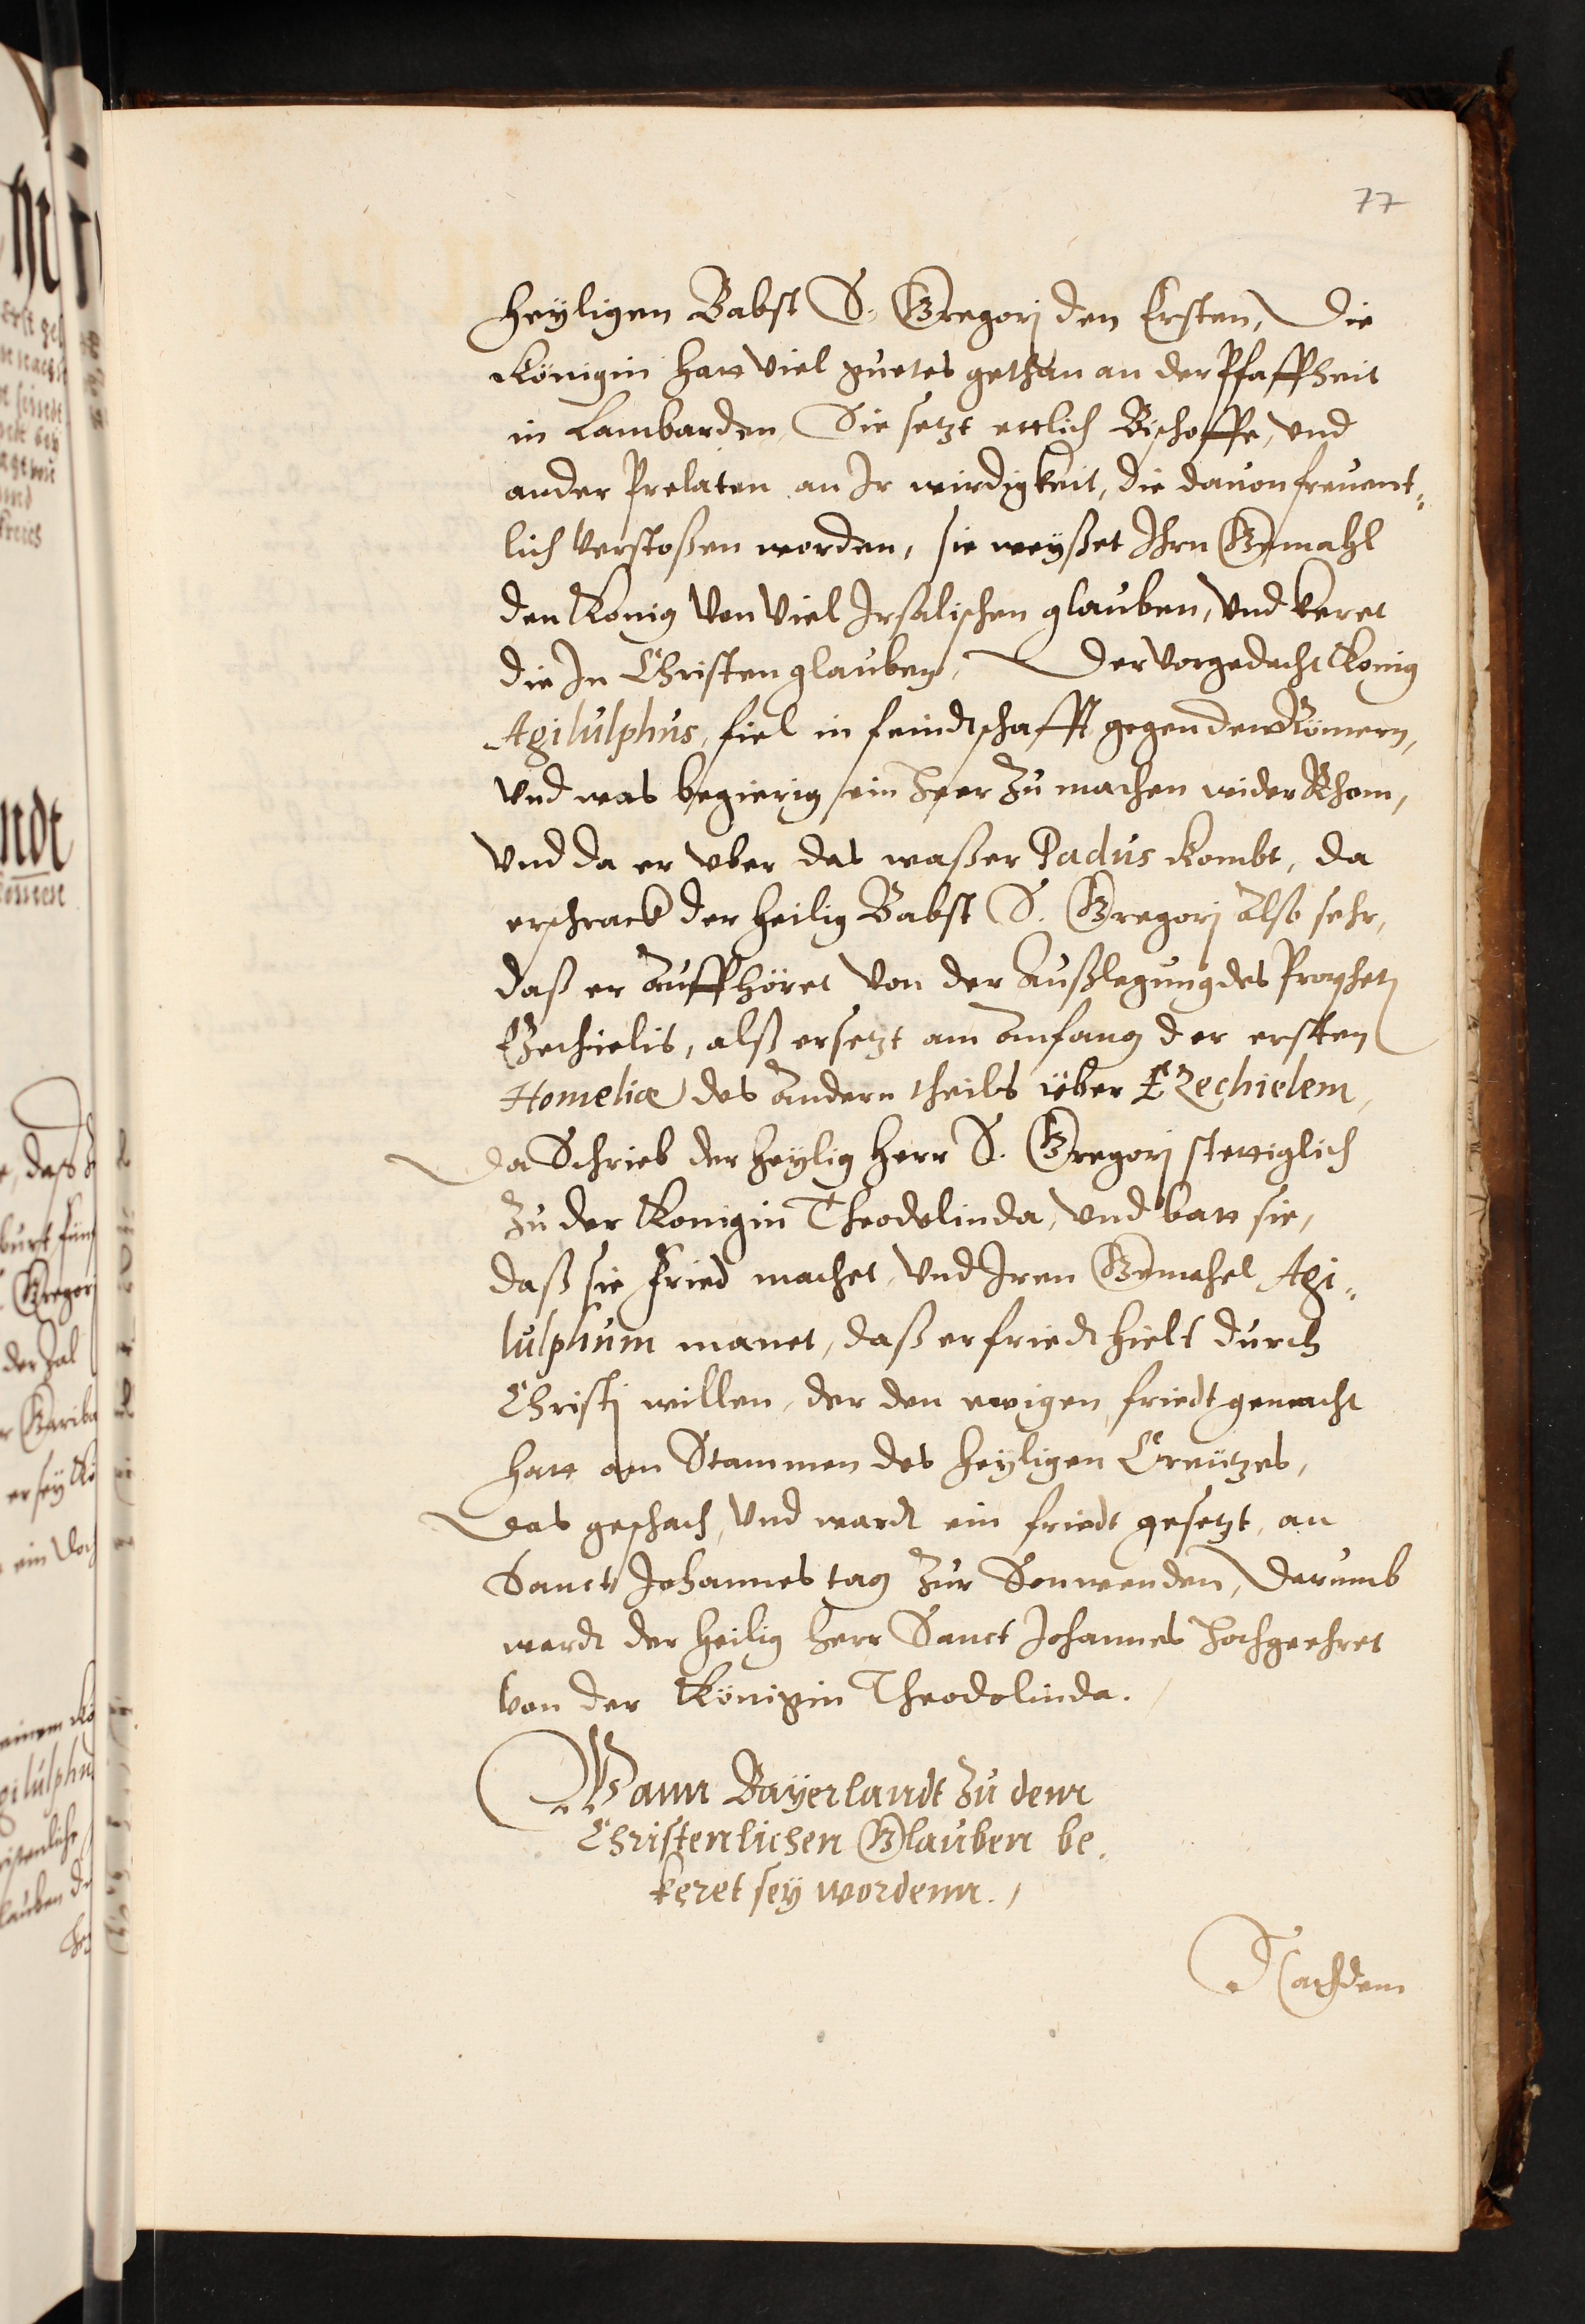 77
heyligen Babst S. Gregorj den Ersten, Die
Königin hatt viel guetes gethan an der Pfaffheit
in Lambarden, Sie setzt ettlich Bischoffe, vnd
ander Prelaten an Ir wirdigkeit, die dauon freuent„
lich verstoßen worden, sie weyßet Ihrn Gemahl
den Konig von viel Irsalischen glauben, vnd keret
die In Christen glauben, Der vorgedacht Konig
Agilulphus, fiel in feindtschafft gegen den Römern,
vnd was begierig ein Heer zu machen wider Rhom,
vnd da er vber das waßer Padus kombt, da
erschrack der heilig Babst S. Gregorj alß sehr,
daß er auffhöret von der Außlegung des Prophetj
Ezechielis, alß er setzt am anfang der ersten
Homeliæ des andern theils über Ezechielem,
da Schrieb der heylig Herr S. Gregorj stettiglich
zu der Konigin Theodelinda, vnd batt sie,
daß sie Fried machet, vnd Iren Gemahel Agi„
lulphum manet, daß er friedt hielt durch
Christj willen, der den ewigen friedt gemacht
hatt am Stammen des heyligen Creützes,
Das geschach, vnd wardt ein friedt gesetzt, an
Sanct Johannes tag zur Sonwenden, Darumb
wardt der heilig herr Sanct Johannes Hochgeehret
von der Königin Theodolinda.
Wann Bayerlandt zu dem
Christenlichen Glauben be„
keret sey wordenn.
Nachdem